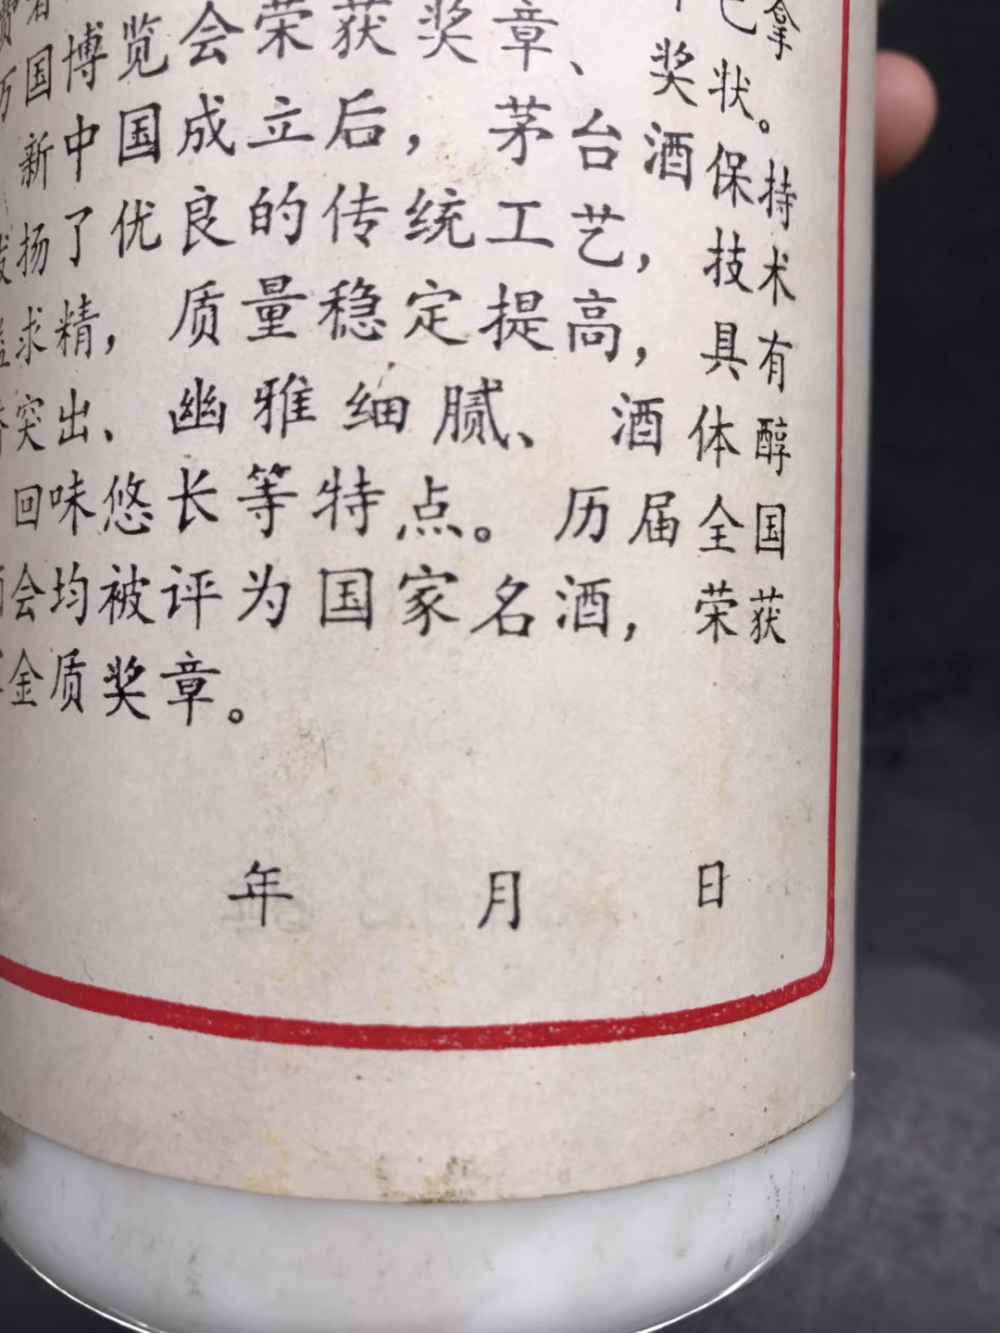 巴拿
万国博览会荣获奖章、奖状。
新中国成立后，茅台酒保持
发扬了优良的传统工艺，技术
求精，质量稳定提高，具有
突出、幽雅细腻、酒体醇
回味悠长等特点。历届全国
会均被评为国家名酒，荣获
金质奖章。
年 月 日